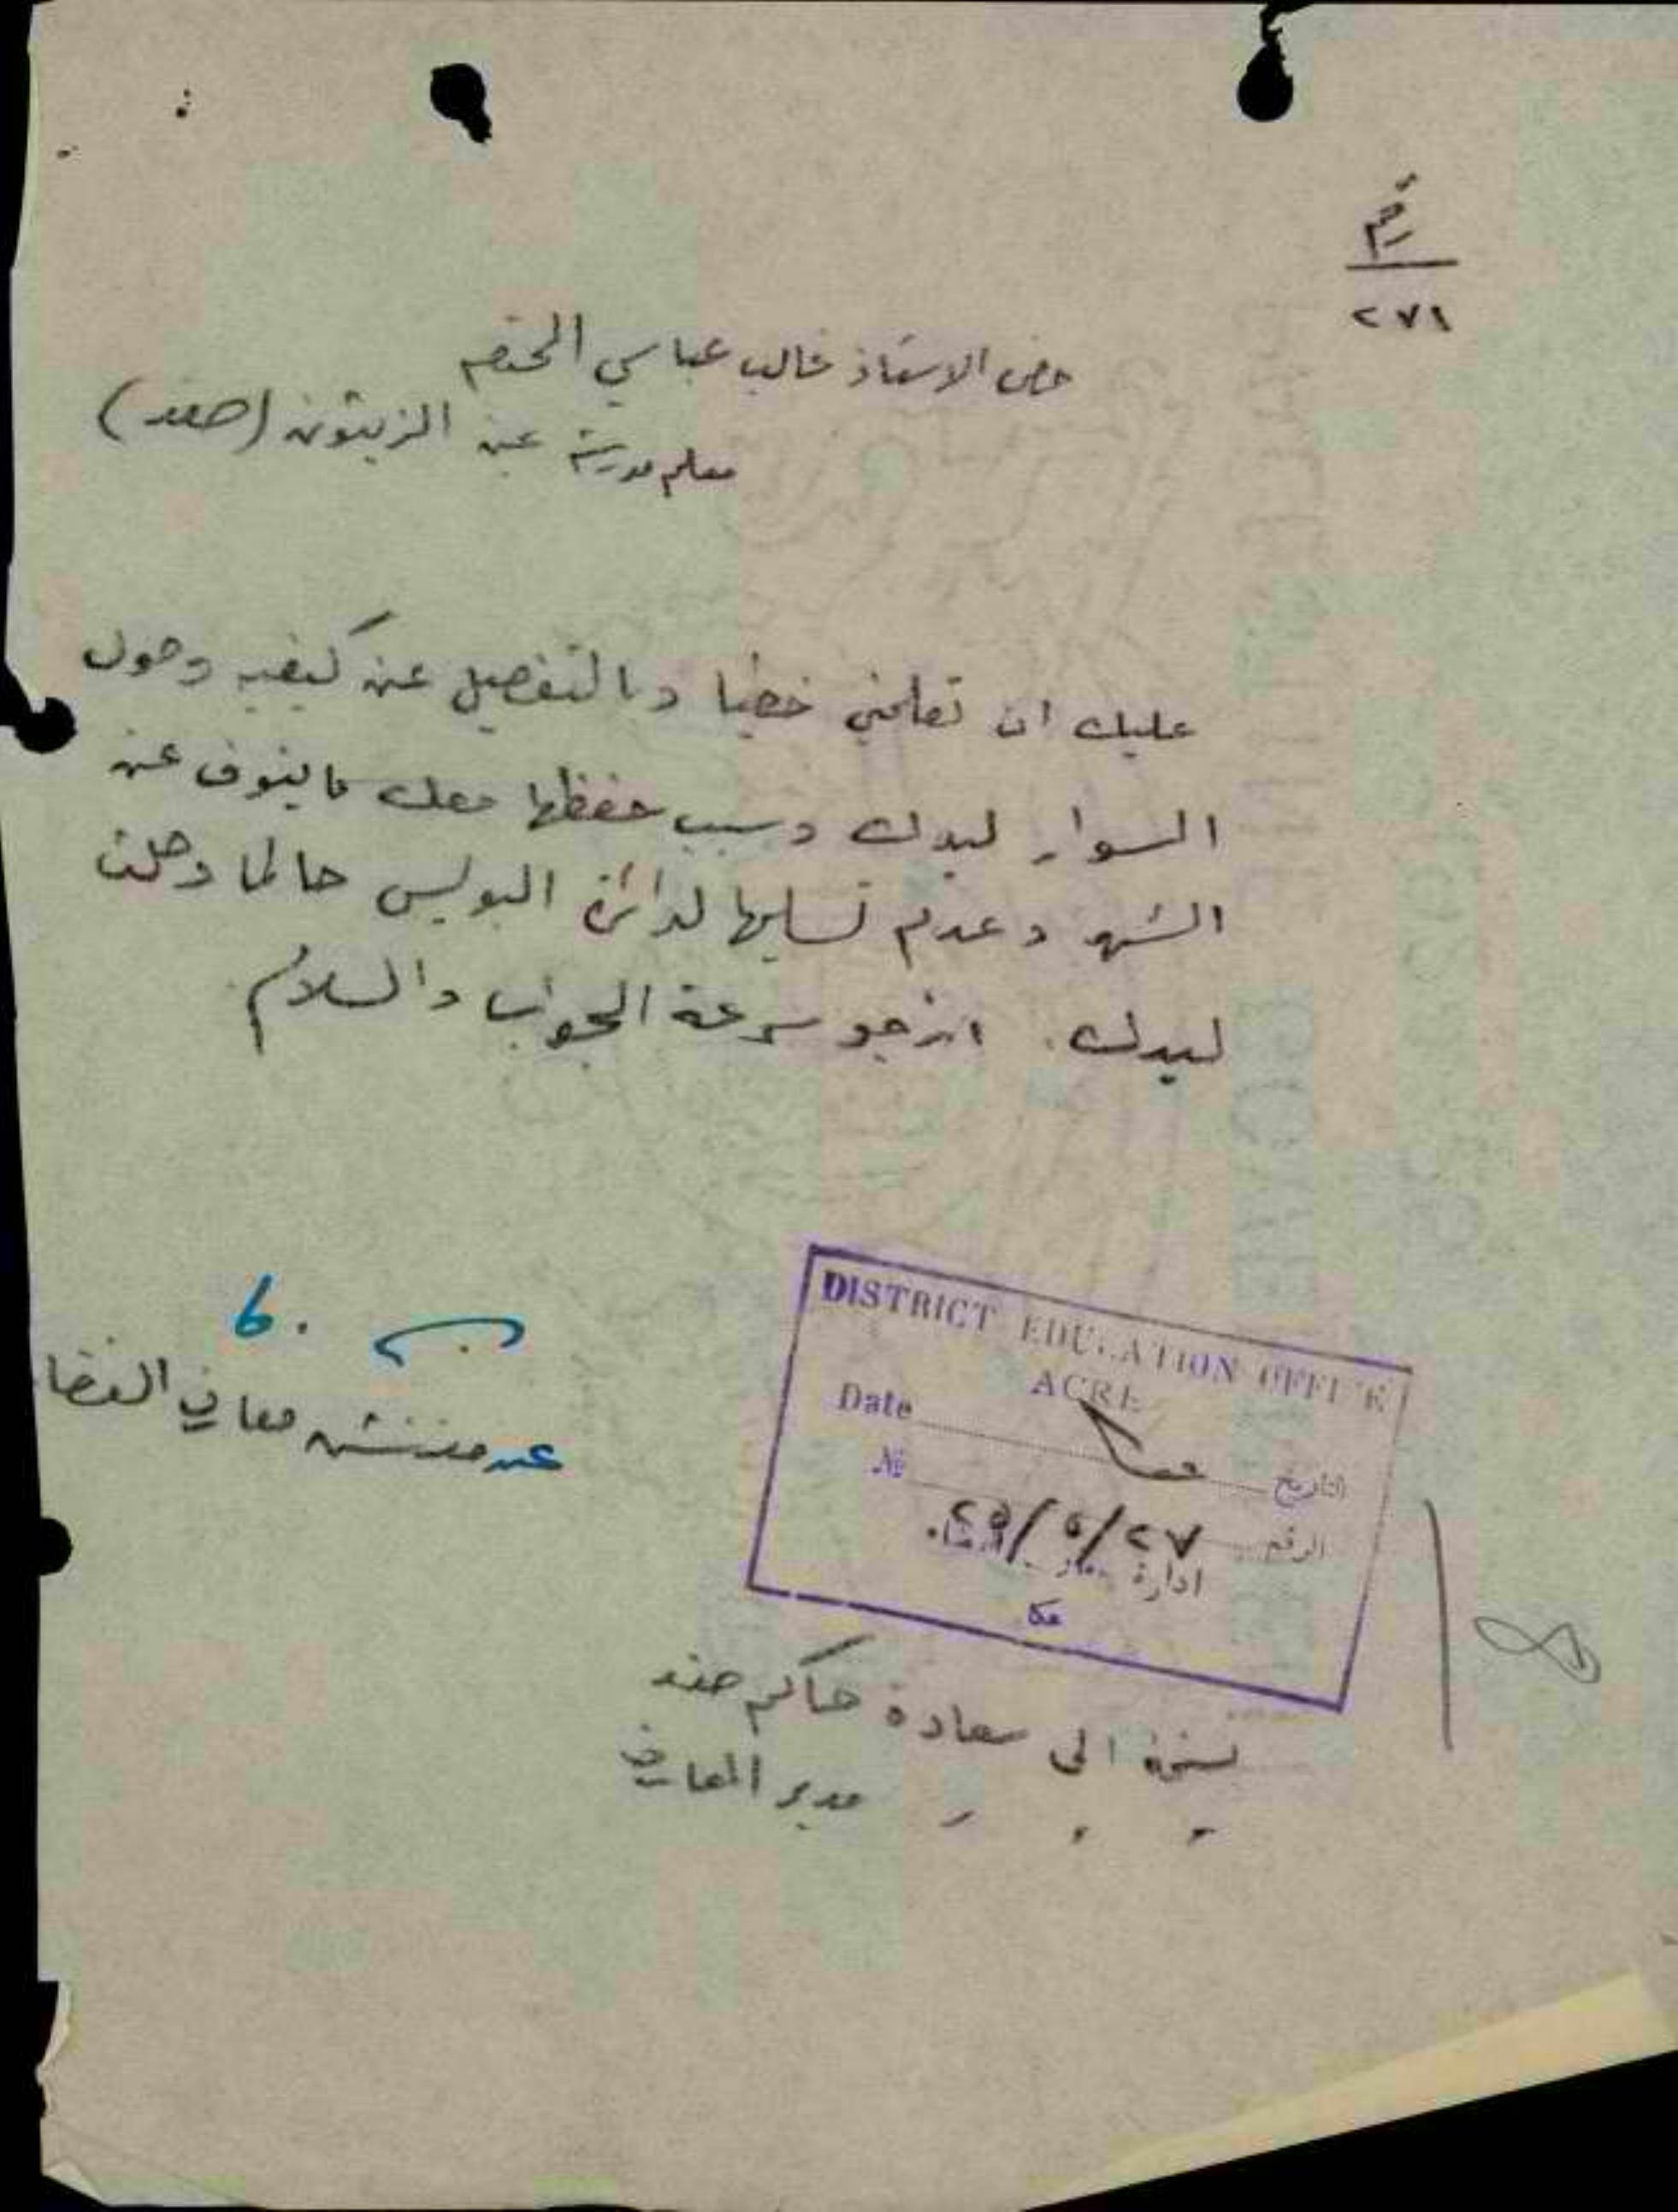 رقم
٢٧١
حضرة الاستاذ غالب عباسي المحترم
معلم مدرسة عين الزيتون (صفد)
عليك ان تعلمني خطيا وبالتفصيل عن كيفية وصول
السوار ليدك وسبب حفظها معك ما ينوف عن
الشهر وعدم تسليمها لدائرة البوليس حالما وصلت
ليدك. ارجو سرعة الجواب والسلام
عن مفتش معارف القضاء
DISTRICT EDUCATION OFFICE
ACRE
Date التاريخ
№ الرقم
٢٥/٥/٢٧
ادارة
عكا
نسخة الى سعادة حاكم صفد
" " " مدير المعارف